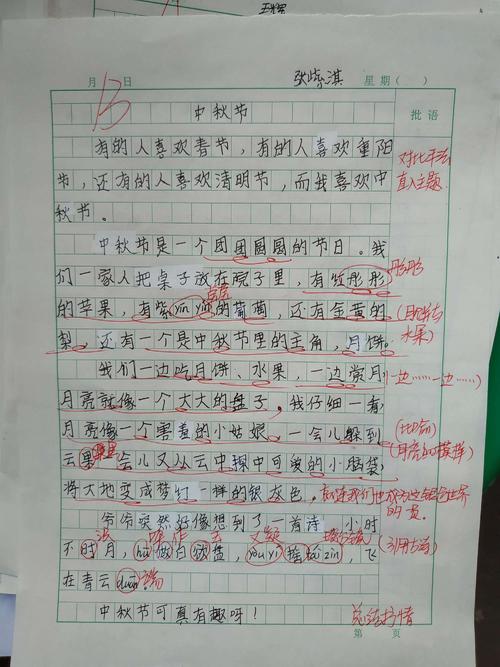 张紫淇
月 日 星期( )
B
中秋节
批语
有的人喜欢春节,有的人喜欢重阳
节,还有的人喜欢清明节,而我喜欢中
秋节。
直入主题
中秋节是一个团团圆圆的节日。我
们一家人把桌子放在院子里,有红彤彤
彤彤
的苹果,有紫yīn yīn的葡萄,还有金黄的
水果)
梨,还有一个是中秋节里的主角,月饼。
我们一边吃月饼、水果,一边赏月
(一边……一边……)
月亮就像一个大大的盘子。我仔细一看
月亮像一个害羞的小姑娘,一会儿躲到
(比喻)
云果 一会儿又从云中探中可爱的小脑袋
将大地变成梦幻一样的银灰色。
爷爷突然好像想到了一首诗,小时
不时月,hū做白欲盘,yòu yí摇tái zin,飞
在青云duān。端
中秋节可真有趣呀!
总结抒情
第 页